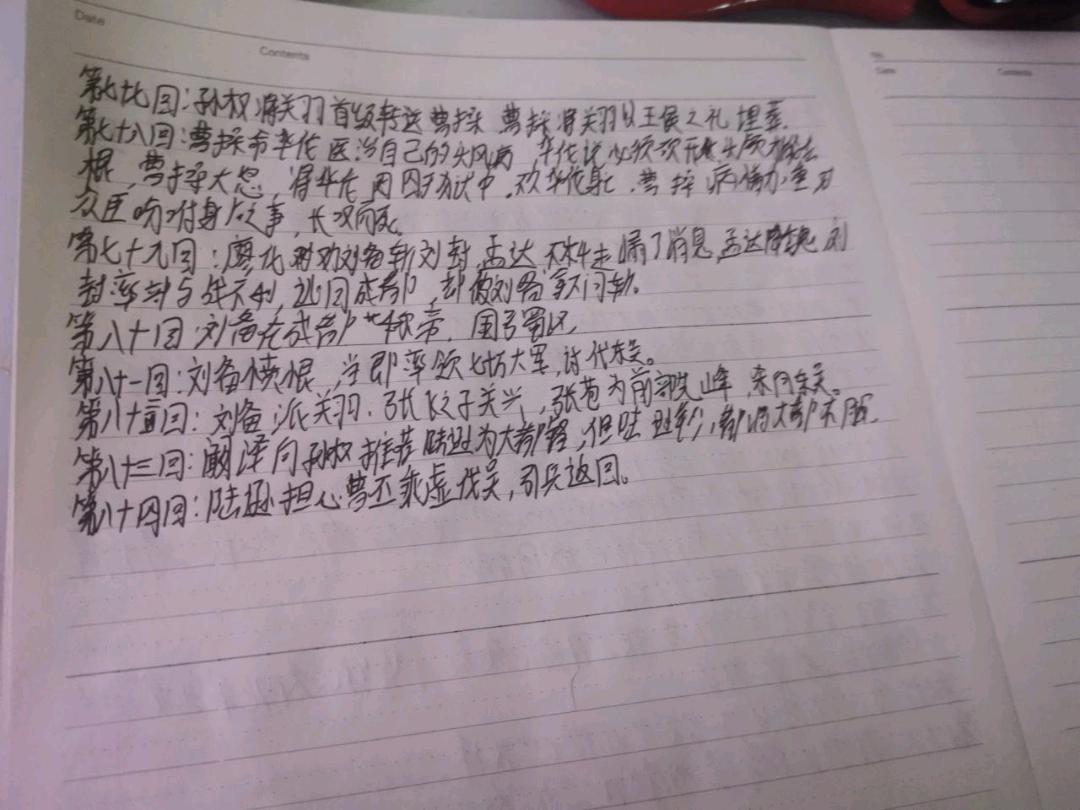 Date
Contents
No.
Date
Contents
第七十七回：孙权将关羽首级转送曹操 曹操将关羽以王侯之礼埋葬.
第七十八回：曹操命华佗医治自己的头风病，华佗说必须
根，曹操大怒，将华佗囚狱中，华佗身亡，曹操病情加重
众臣吩咐身后之事，长叹而死
第七十九回：廖化劝刘备斩刘封，孟达走漏了消息，孟达降魏 刘
封率与战不利，逃回成都，却被刘备斩
第八十回：刘备在成都称帝，国号蜀汉
第八十一回：刘备愤恨，当即率领七十万大军，讨伐东吴。
第八十二回：刘备派关羽.张飞之子关兴，张苞为前部先峰，东吴。
第八十三回：阚泽向孙权推荐陆逊为大都督，但陆逊年
第八十四回：陆逊担心曹丕乘虚伐吴，引兵返回。